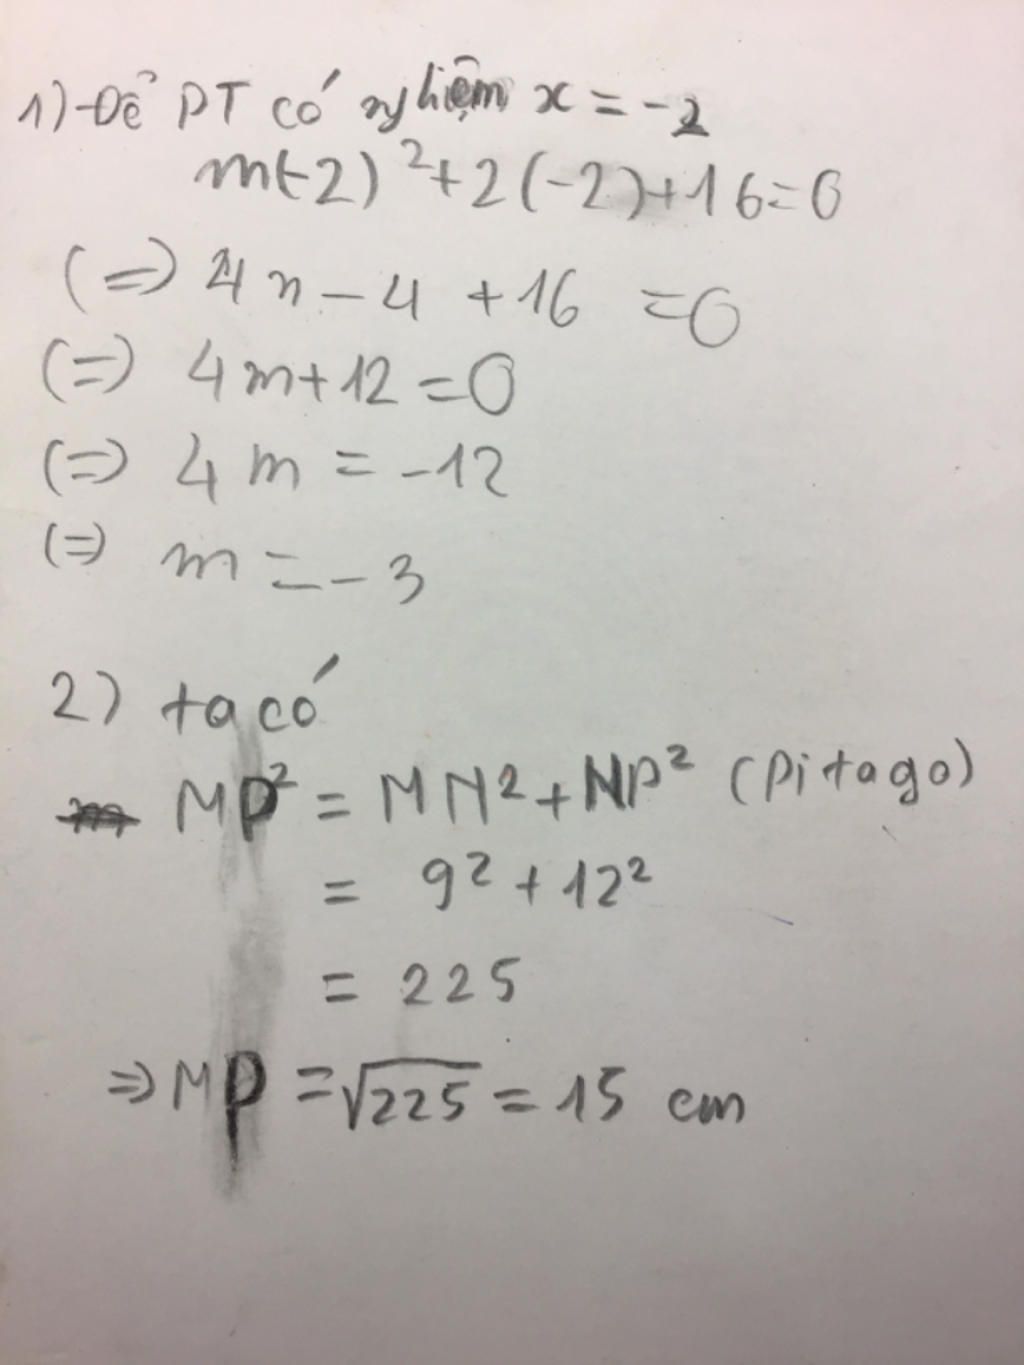 1) Để PT có nghiệm x = -2
m(-2)² + 2(-2) + 16 = 0
(=) 4n - 4 + 16 = 0
(=) 4m + 12 = 0
(=) 4m = -12
(=) m = -3
2) ta có
MP² = MN² + NP² (pitago)
= 9² + 12²
= 225
=> MP = √225 = 15 cm